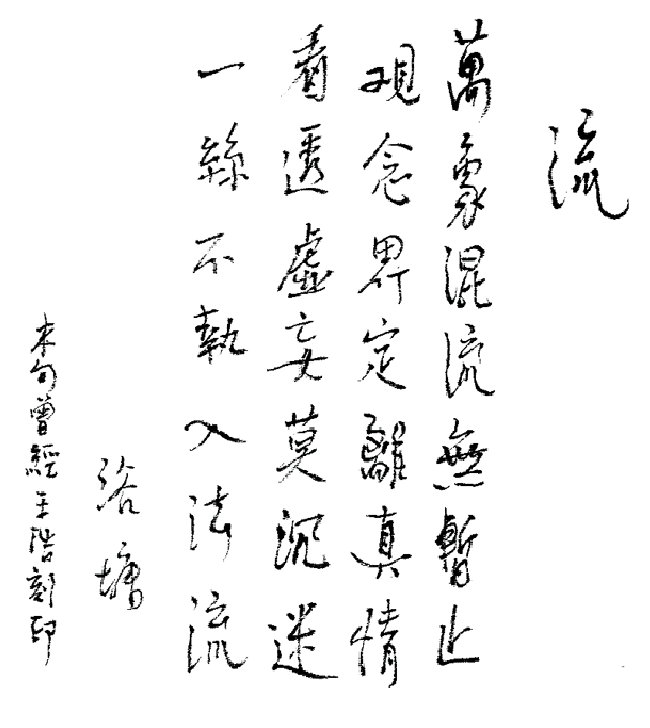 流
萬象混流無暫止
觀念界定離真情
看透虛妄莫沉迷
一絲不執入法流
浴塘
末句曾經王浩刻印